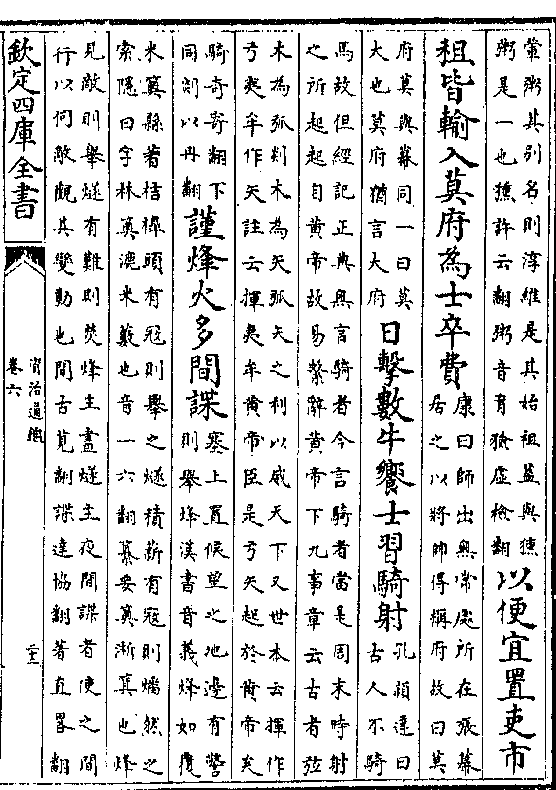 葷粥其别名則淳維是其始祖蓋與獯
粥是一也獯許云翻粥音育獫虚檢翻
以便宜置吏市
租皆輸入莫府為士卒費
康曰師出無常處所在張幕
居之以將帥得稱府故曰莫
府莫與幕同一曰莫
大也莫府猶言大府
日擊數牛饗士習騎射
孔頴達曰
古人不騎
馬故但經記正典無言騎者今言騎者當是周末時射
之所起起自黄帝故易繫辭黄帝下九事章云古者弦
木為弧剡木為矢弧矢之利以威天下又世本云揮作
弓夷牟作矢註云揮夷牟黄帝臣是弓矢起於黄帝矣
騎奇寄翻下
同剡以冉翻
謹烽火多間諜
塞上置候望之地邊有警
則舉烽漢書音義烽如覆
米䉛縣著桔橰頭有冦則舉之燧積薪有冦則燔然之
索隱曰字林䉛漉米籔也音一六翻纂要䉛淅箕也烽
見敵則舉燧有難則焚烽主晝燧主夜間諜者使之間
行以伺敵觀其變動也間古莧翻諜達協翻著直畧翻
欽定四庫全書
資治通鑑
卷六
二十三